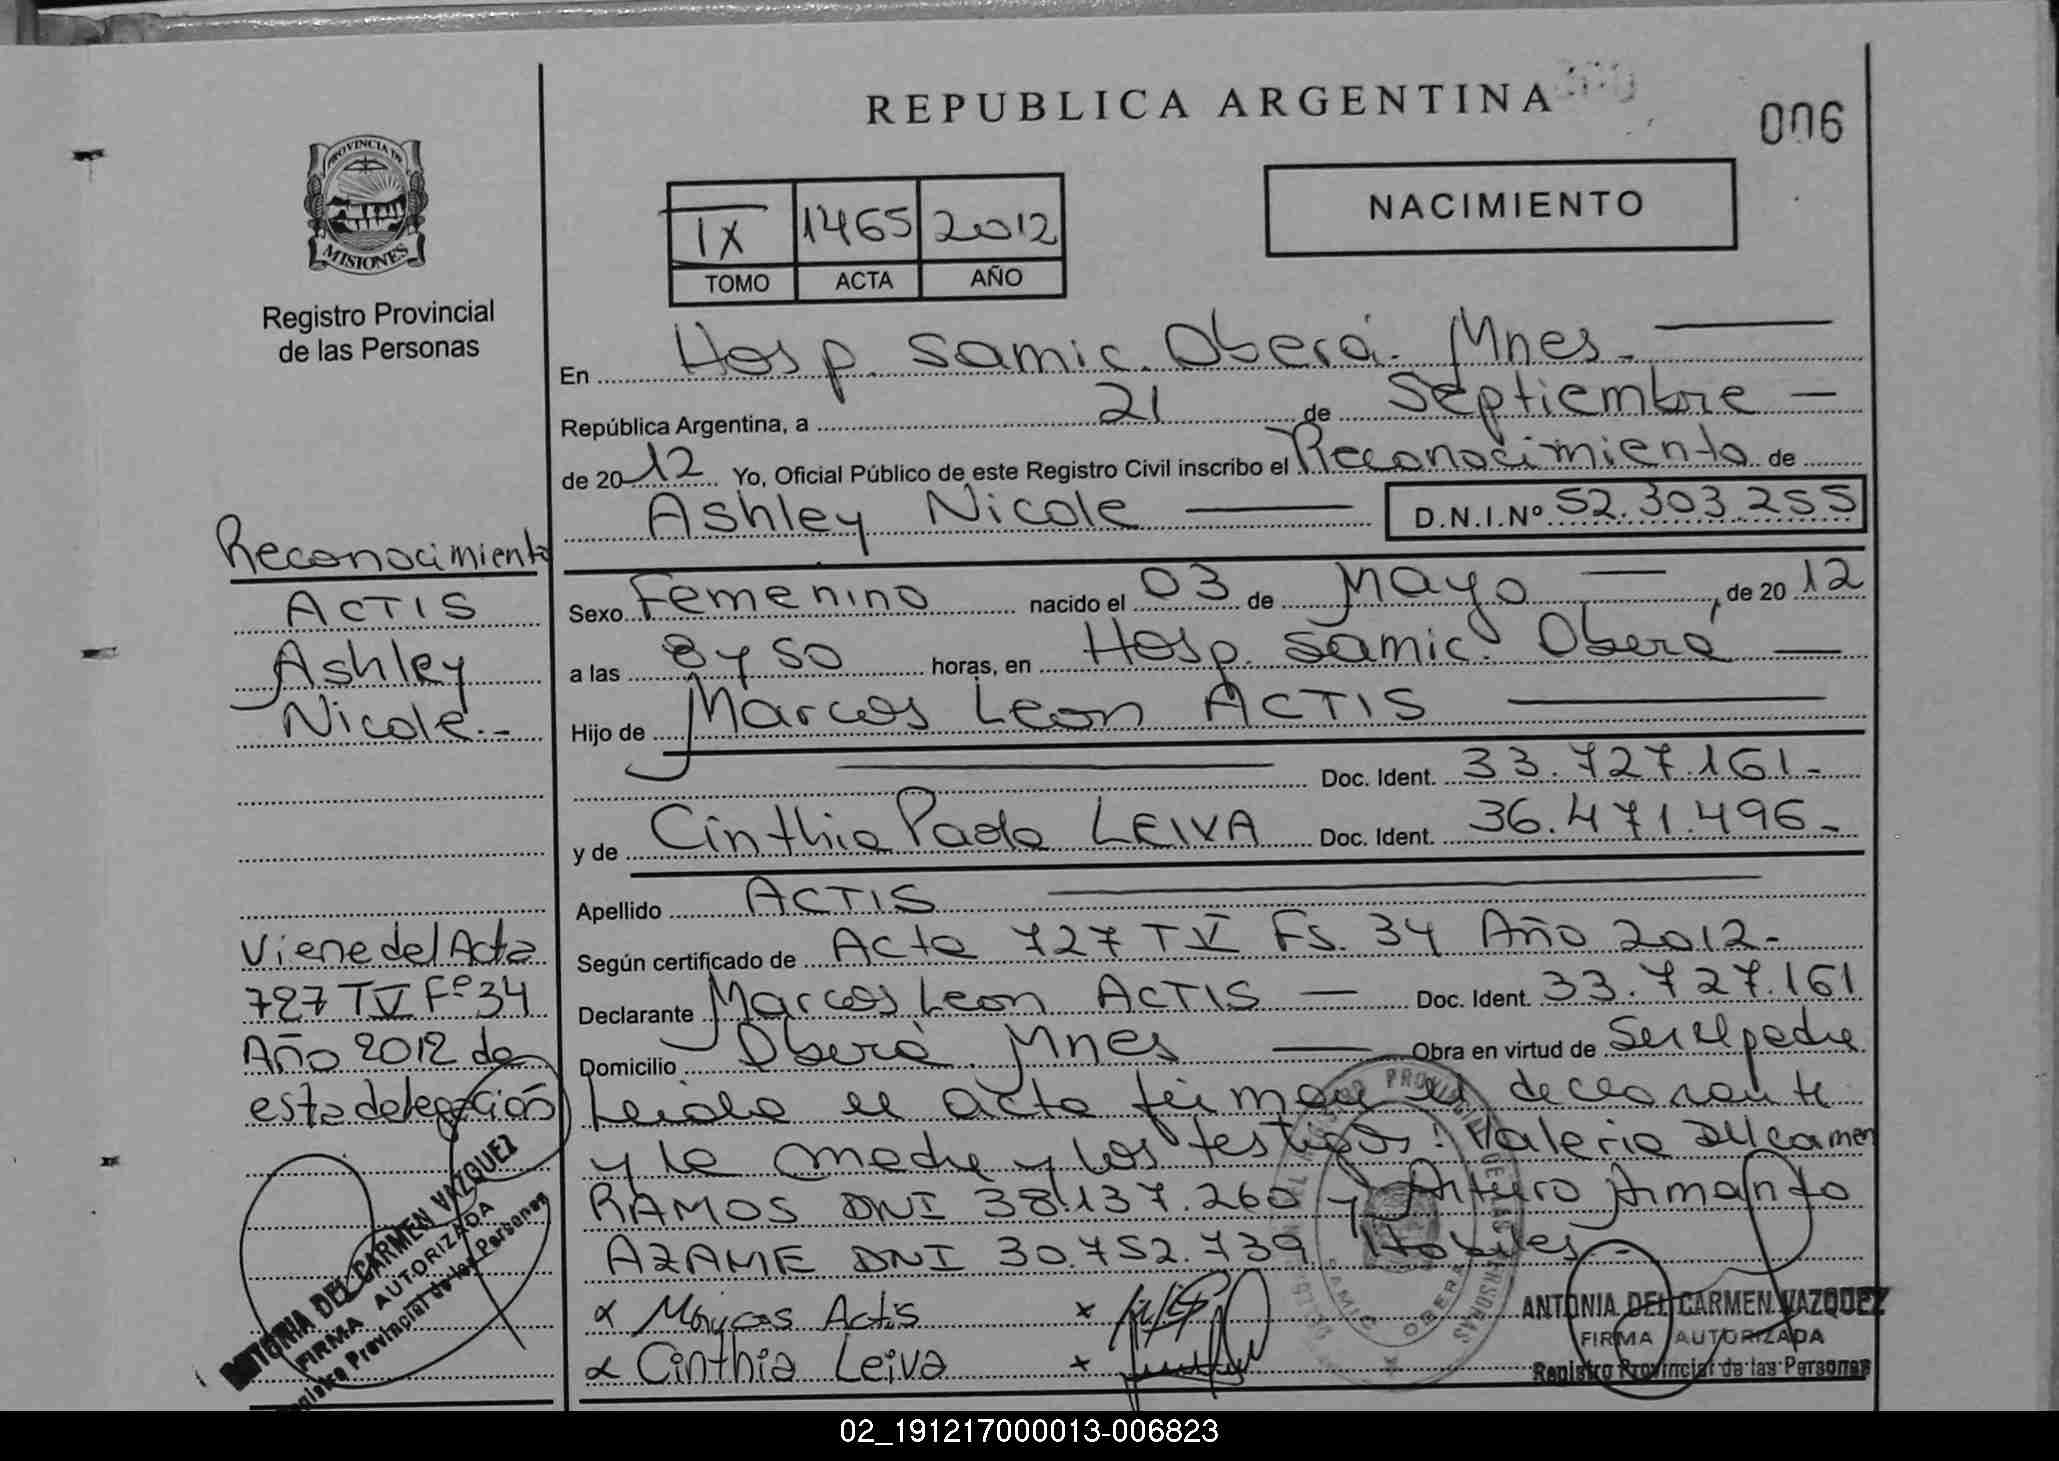 REPUBLICA ARGENTINA
006
PROVINCIA DE
MISIONES
Registro Provincial
de las Personas
IX 1465 2012
TOMO ACTA AÑO
NACIMIENTO
En Hosp. Samic. Oberá. Mnes.
República Argentina, a 21 de Septiembre
de 2012 Yo, Oficial Público de este Registro Civil inscribo el Reconocimiento de
Ashley Nicole D.N.I.Nº 52.303.255
Sexo Femenino nacido el 03 de Mayo, de 2012
a las 8 y 50 horas, en Hosp. Samic. Oberá
Hijo de Marcos Leon ACTIS
Doc. Ident. 33.727.161.-
y de Cinthia Paola LEIVA Doc. Ident. 36.471.496.-
Apellido ACTIS
Según certificado de Acta 727 T V Fs. 34 Año 2012.-
Declarante Marcos Leon ACTIS Doc. Ident. 33.727.161
Domicilio Oberá Mnes Obra en virtud de Ser el padre
Leida el acta firman el declarante
y la madre y los testigos: Valeria Del Carmen
RAMOS DNI 38.137.260 y Arturo Armando
AZAME DNI 30.752.739 Hábiles.-
x Marcos Actis x
x Cinthia Leiva x
ANTONIA DEL CARMEN VAZQUEZ
FIRMA AUTORIZADA
Registro Provincial de las Personas
SAMIC OBERA
Reconocimiento
ACTIS
Ashley
Nicole.-
Viene del Acta
727 TV Fº 34
Año 2012 de
esta delegación
ANTONIA DEL CARMEN VAZQUEZ
FIRMA AUTORIZADA
Registro Provincial de las Personas
02_191217000013-006823